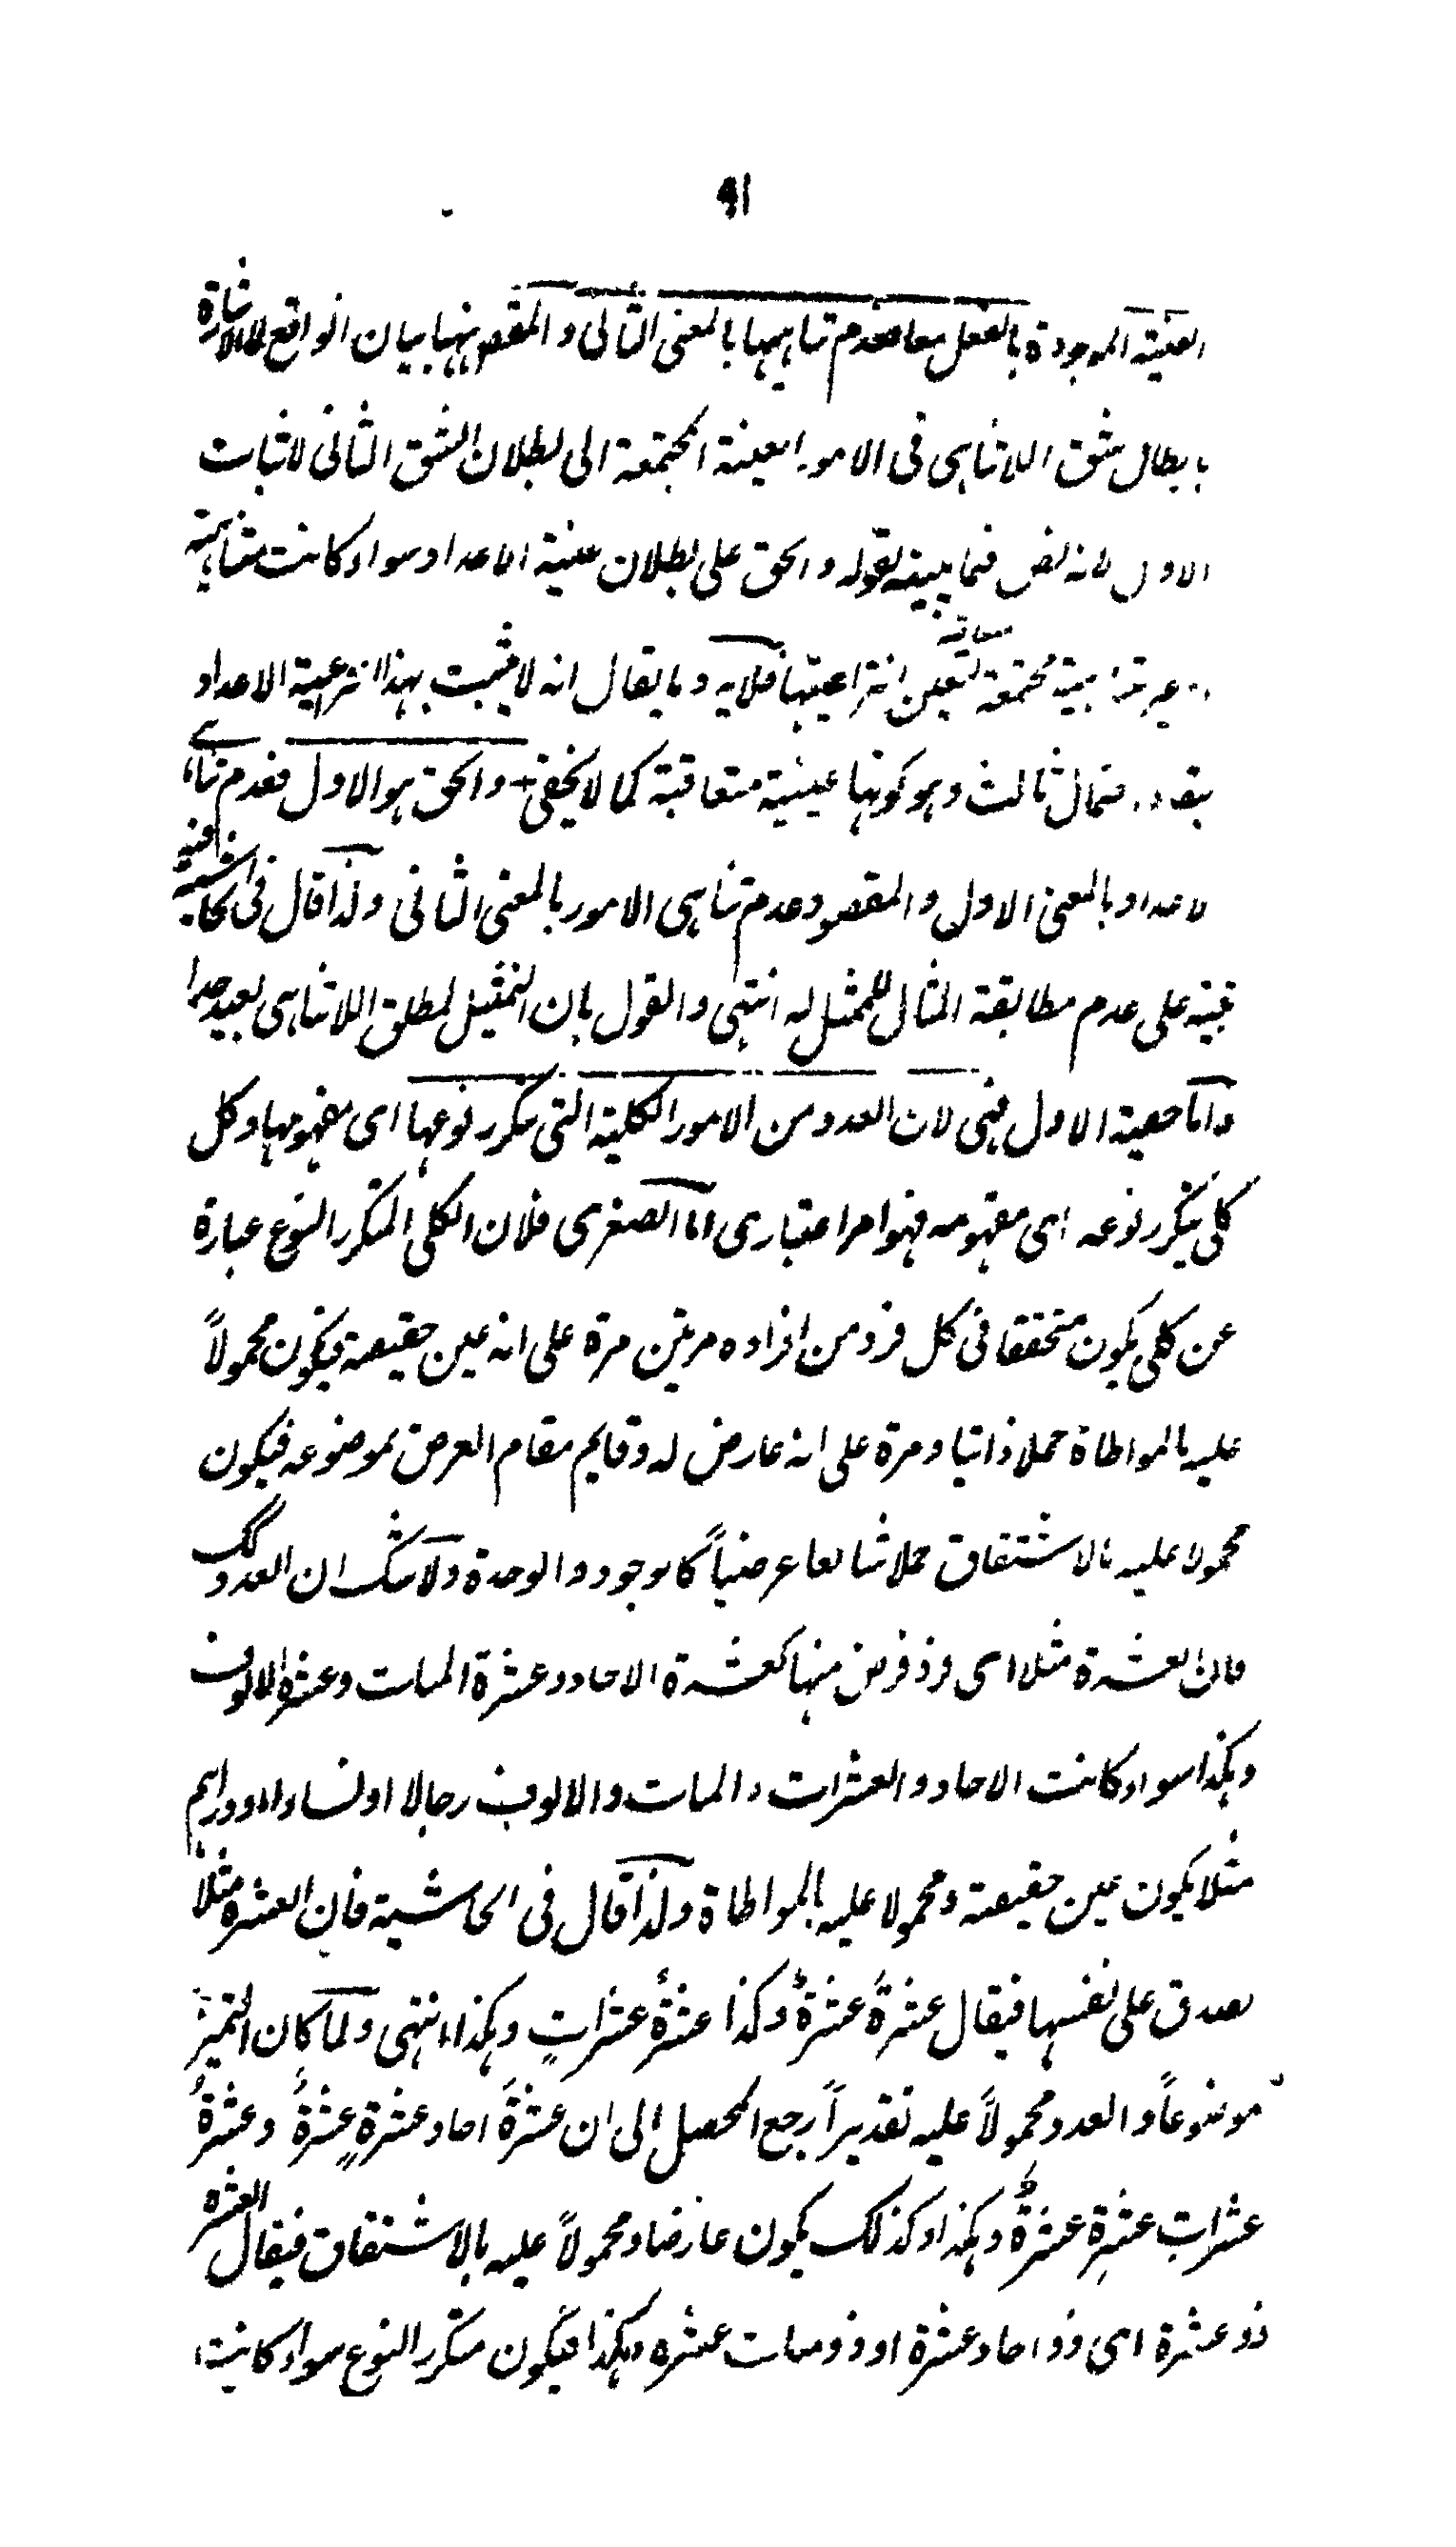 41
العينية الموجودة بالفعل معا فعدم تناهيها بالمعنى الثانى والمقصود ههنا بيان الواقع لا الاشارة
بابطال شق اللاتناهى فى الامور العينية المجتمعة الى بطلان الشق الثانى لاثبات
الاول لانه نص فيما بينه بقوله والحق على بطلان عينية الاعداد سواء كانت متناهية
او غير متناهية مجتمعة متعاقبة لتعين انتزاعيتها فلا يرد ما يقال انه لا يثبت بهذا انتزاعية الاعداد
بقاء احتمال ثالث وهو كونها عينية متعاقبة كما لا يخفى والحق هو الاول فعدم تناهى
الاعداد بالمعنى الاول والمقصود عدم تناهى الامور بالمعنى الثانى ولذا قال فى الحاشية فيه
تنبيه على عدم مطابقة المثال للممثل له انتهى والقول بان التمثيل لمطلق اللاتناهى بعيد جدا
واما حقية الاول فهى لان العدد من الامور الكلية التى يتكرر نوعها اى مفهومها وكل
كلى يتكرر نوعه اى مفهومه فهو امر اعتبارى اما الصغرى فلان الكلى المتكرر النوع عبارة
عن كلى يكون متحققا فى كل فرد من افراده مرتين مرة على انه عين حقيقته فيكون محمولاً
عليه بالمواطاة حملا ذاتيا ومرة على انه عارض له وقايم مقام العرض بموضوعه فيكون
محمولا عليه بالاشتقاق حملا شائعا عرضياً كالوجود والوحدة ولا شك ان العدد كك
فان العشرة مثلا اى فرد فرض منها كعشرة الاحاد وعشرة المات وعشرة الالوف
وهكذا سواء كانت الاحاد والعشرات والمات والالوف رجالا او نساء او دراهم
مثلا يكون عين حقيقته ومحمولا عليه بالمواطاة ولذا قال فى الحاشية فان العشرة مثلا
يصدق على نفسها فيقال عشرةً عشرةٌ وكذا عشرةُ عشراتٍ وهكذا انتهى ولما كان التميز
موضوعاً والعدد محمولاً عليه تقديراً رجع المحصل الى ان عشرةً احاد عشرةٍ عشرةٌ وعشرةُ
عشراتٍ عشرةٍ عشرةٌ وهكذا وكذلك يكون عارضا ومحمولاً عليه بالاشتقاق فيقال العشرة
ذو عشرة اى ذو احاد عشرة او ذو مات عشرة وهكذا فيكون متكرر النوع سواء كانت